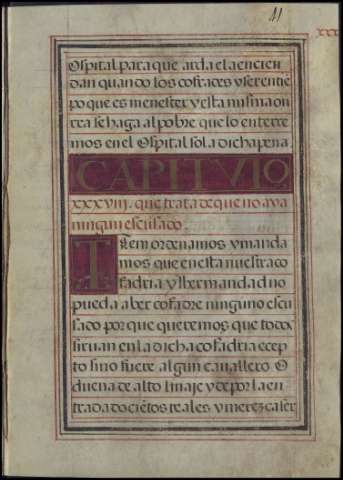 41
xxx
ospital para que arda el aencien
dan quando los cofrades vyeren tiē
po que es menester y esta misma on
rra se haga al pobre que lo enterre
mos en el ospital so la dicha pena.
CAPITVLO
XXXVIIJ. que trata de que no aya
ningun escusado.
Tten ordenamos y manda
mos que en esta nuestra co
fadria y hermandad no
pueda aber cofadre ninguno escu
sado por que queremos que todos
siruan en la dicha cofadria ecep
to sino fuere algun cauallero o
duena de alto linaje y de por la en
trada doçiētos reales y merezca ser